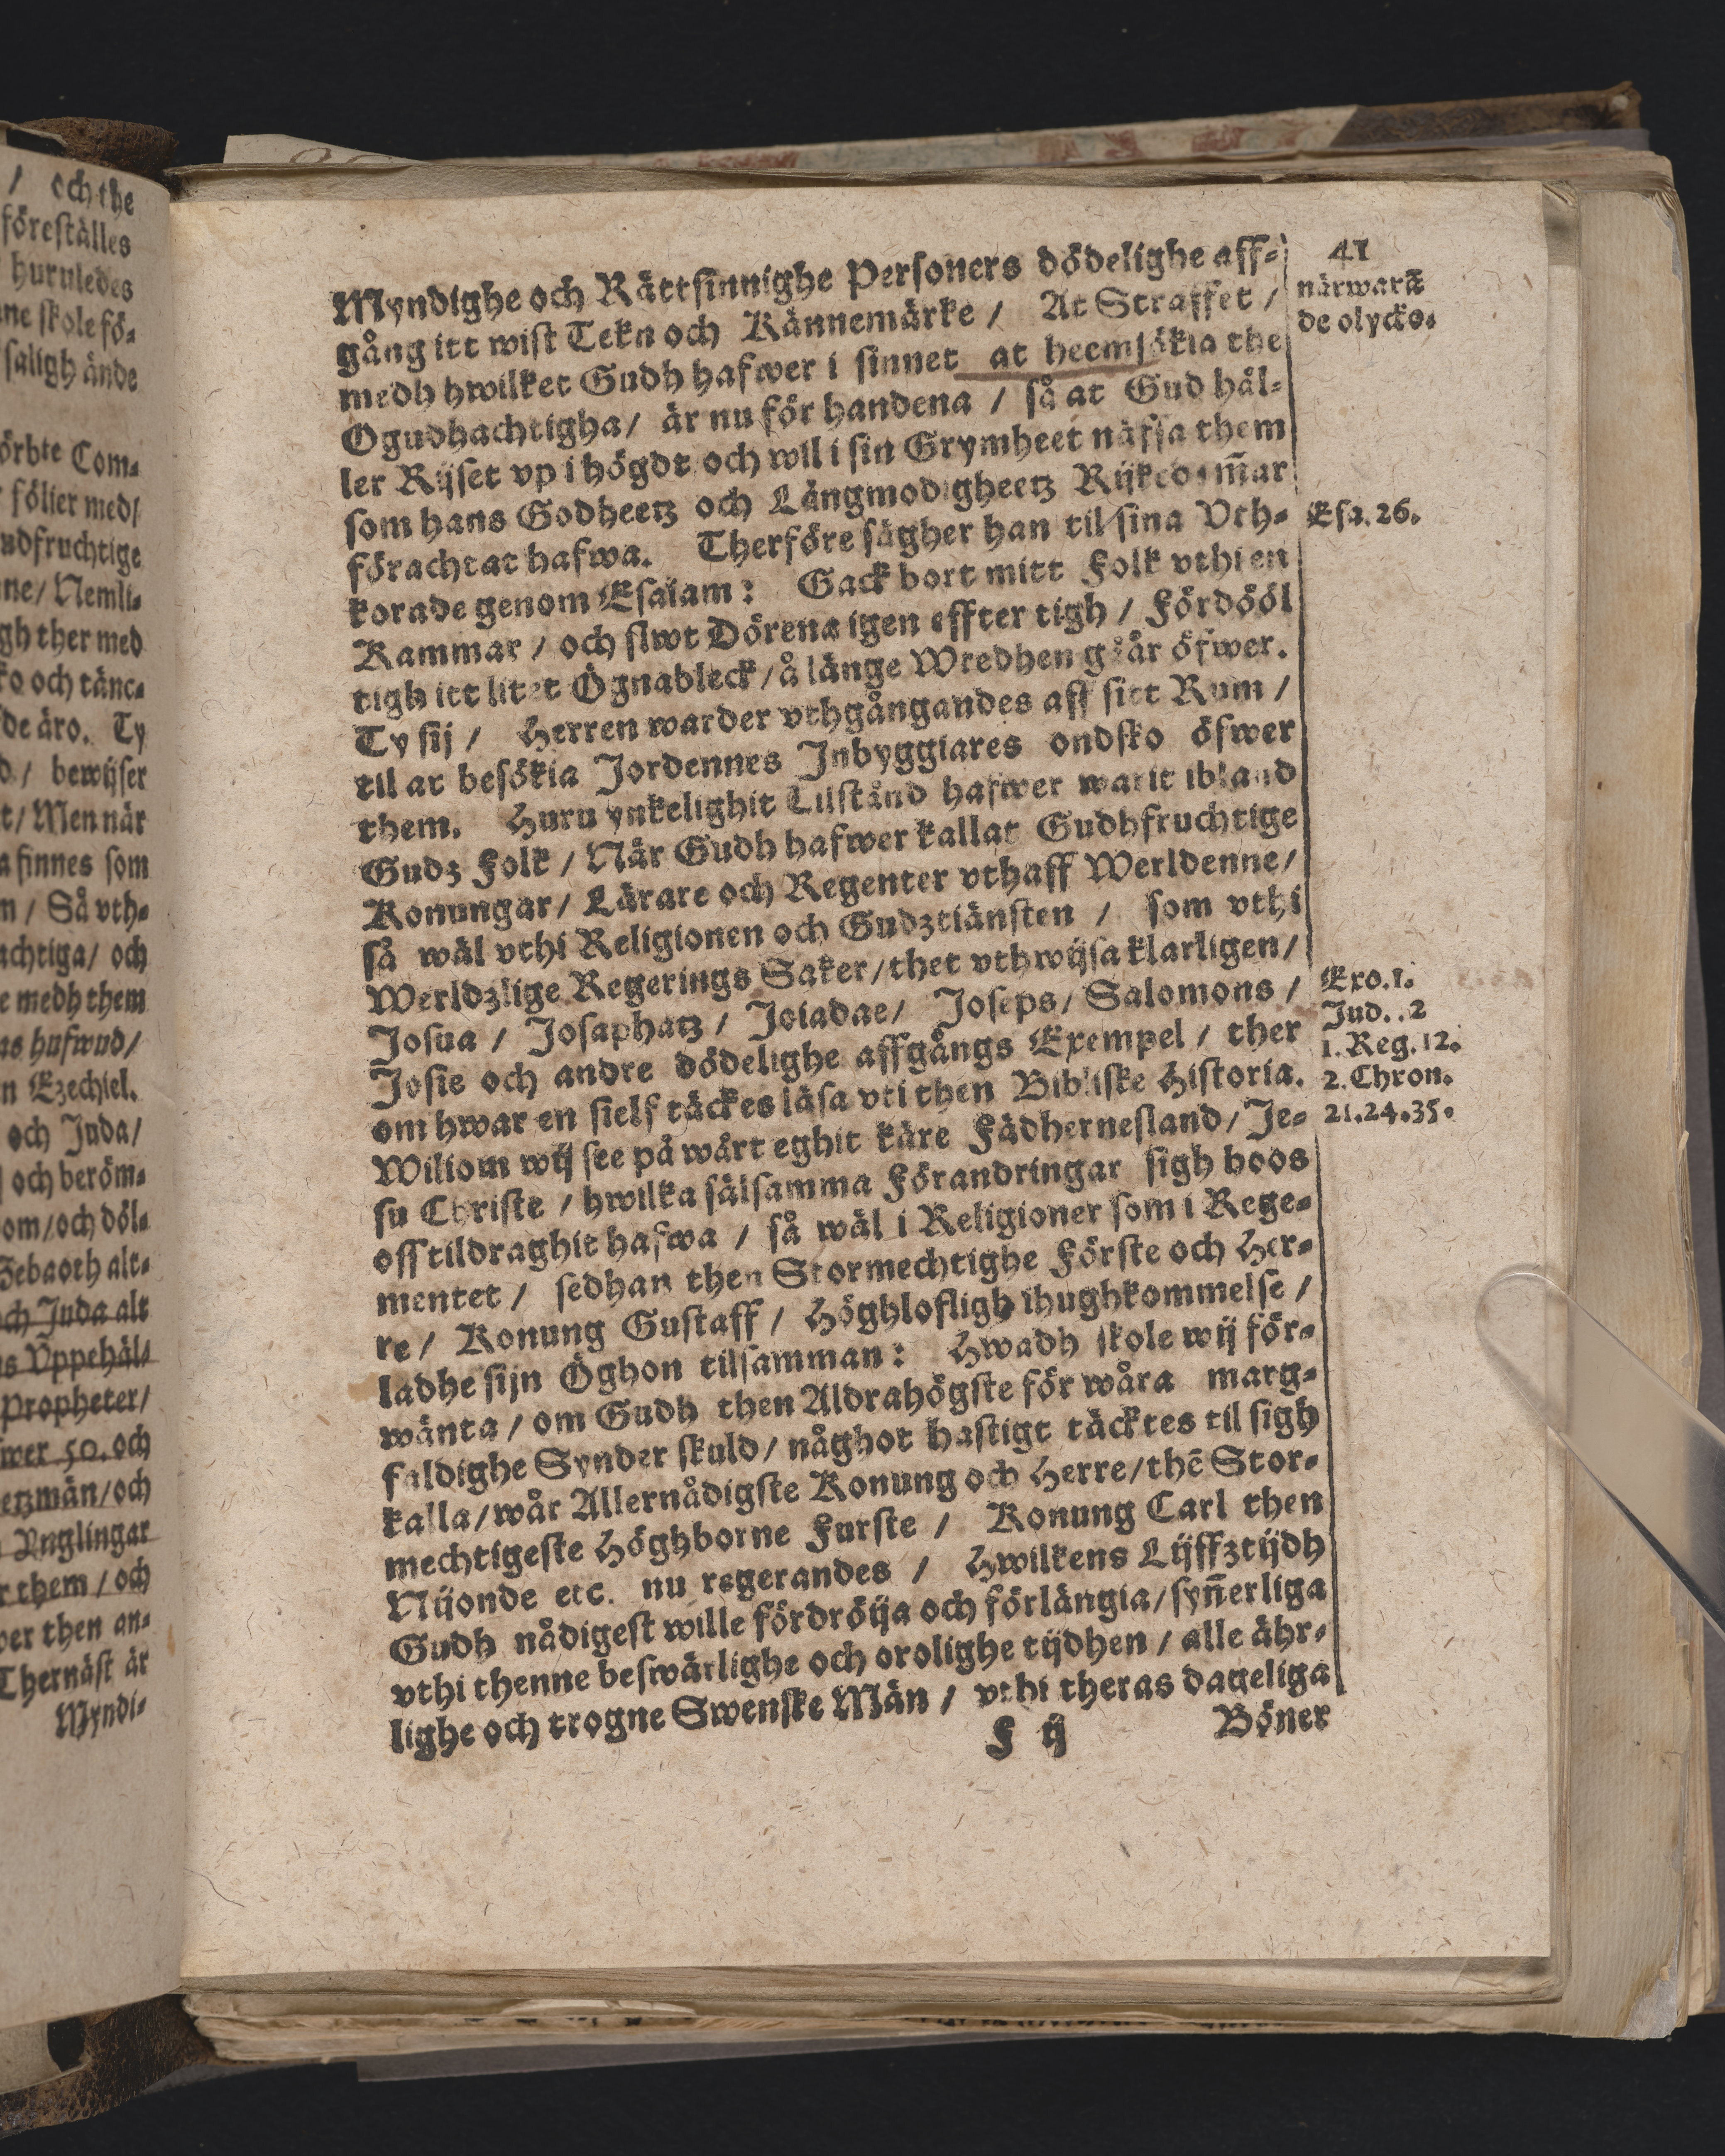 / och the
föreställes
huruledes
ne skole fö-
saligh ände
örbte Com-
följer med/
udfruchtige
ne/ Nemli-
gh ther med
ko och tänc-
de äro. Ty
d / bewijser
t/ Men när
a finnes som
n / Så vth-
achtiga/ och
e medh them
as hufwud/
n Ezechiel.
och Juda/
och beröm-
om/ och döl-
Zebaoth alt-
och Juda alt
as Vppehäl-
Propheter/
wer 50. och
etzmän/ och
Ynglingar
r them / och
wer then an-
Thernäst är
Myndi-
41
Myndighe och Rättsinnighe Personers dödelighe aff-
gång itt wist Tekn och Kännemärke / At Straffet /
medh hwilket Gudh hafwer i sinnet at heemsökia the
Ogudhachtigha/ är nu för handena / så at Gud hål-
ler Rijset vp i högdt och wil i sin Grymheet näfsa them
som hans Godheetz och Långmodigheetz Rijkedom̄ar
förachtat hafwa. Therföre sägher han til sina Vth-
korade genom Esaiam: Gack bort mitt Folk vthi en
Kammar / och slwt Dörena igen effter tigh / Fördööl
tigh itt litet Ögnableck/ å länge Wredhen gåår öfwer.
Ty sij / Herren warder vthgångandes aff sitt Rum /
til at besökia Jordennes Inbyggiares ondsko öfwer
them. Huru ynkelighit Tilstånd hafwer warit ibland
Gudz Folk / När Gudh hafwer kallat Gudhfruchtige
Konungar/ Lärare och Regenter vthaff Werldenne/
så wäl vthi Religionen och Gudztiänsten / som vthi
Werldzlige Regerings Saker/ thet vthwijsa klarligen/
Josua / Josaphatz / Joiadae/ Joseps/ Salomons /
Josie och andre dödelighe affgångs Exempel / ther
om hwar en sielf täckes läsa vti then Bibliske Historia.
Wiliom wij see på wårt eghit käre Fädhernesland/ Je-
su Christe / hwilka sälsamma Förandringar sigh hoos
oss tildraghit hafwa / så wäl i Religioner som i Rege-
mentet / sedhan then Stormechtighe Förste och Her-
re / Konung Gustaff / Höghlofligh ihughkommelse /
ladhe sijn Öghon tilsamman: Hwadh skole wij för-
wänta / om Gudh then Aldrahögste för wåra marg-
faldighe Synder skuld/ någhot hastigt täcktes til sigh
kalla/ wår Allernådigste Konung och Herre/ thē Stor-
mechtigeste Höghborne Furste / Konung Carl then
Nijonde etc. nu regerandes / Hwilkens Lijffztijdh
Gudh nådigest wille fördröija och förlängia/ syn̄erliga
vthi thenne beswärlighe och orolighe tijdhen / alle ähr-
lighe och trogne Swenske Män / vthi theras dageliga
F ij Böner
närwarā
de olycko.
Esa. 26.
Exo. 1.
Jud. . 2
1. Reg. 12.
2. Chron.
21. 24. 35.